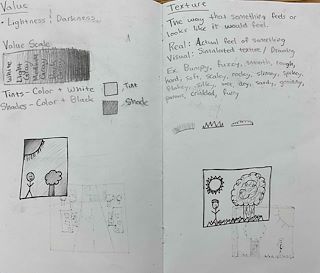 Value
• Lightness | Darkness
Value Scale
White
Light
Gray
Medium
Gray
Tints - Color + White
Tint
Shades - Color + Black
Shade
Texture
The way that something feels or
looks like it would feel.
Real: Actual feel of something
Visual: Simulated texture / Drawing
Ex. Bumpy, fuzzy, smooth, rough,
hard, soft, scaley, rocky, slimey, spikey,
flakey, silky, wet, dry, sandy,
crinkled, furry